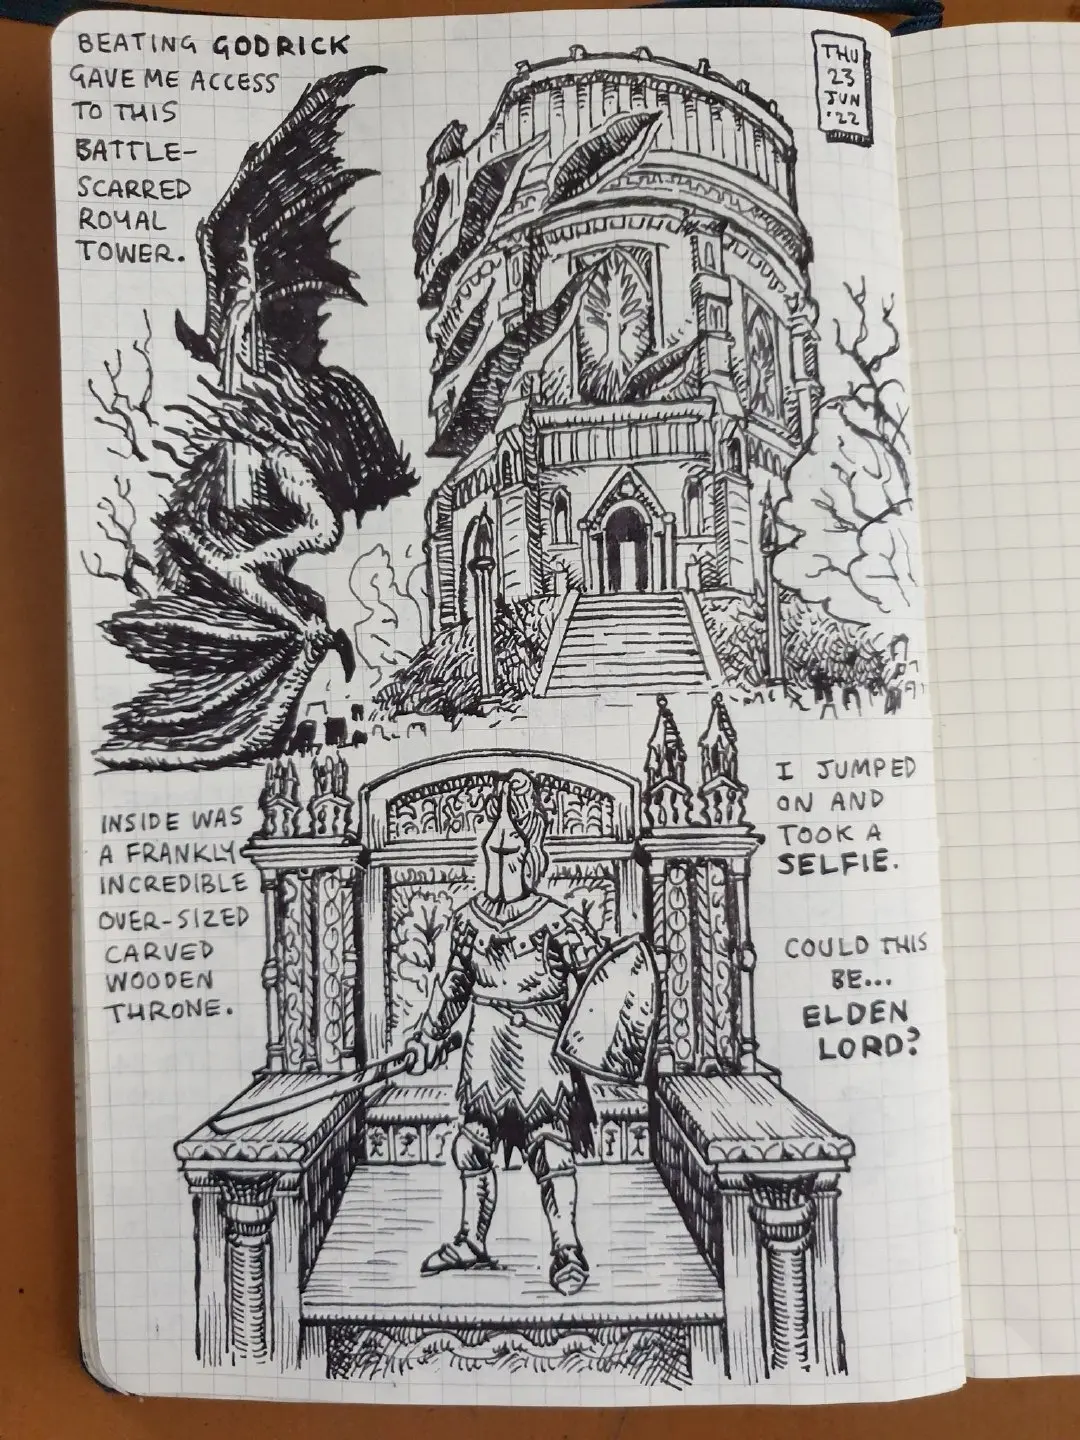 BEATING GODRICK
GAVE ME ACCESS
TO THIS
BATTLE-
SCARRED
ROYAL
TOWER.
THU
23
JUN
'22
INSIDE WAS
A FRANKLY
INCREDIBLE
OVER-SIZED
CARVED
WOODEN
THRONE.
I JUMPED
ON AND
TOOK A
SELFIE.
COULD THIS
BE...
ELDEN
LORD?